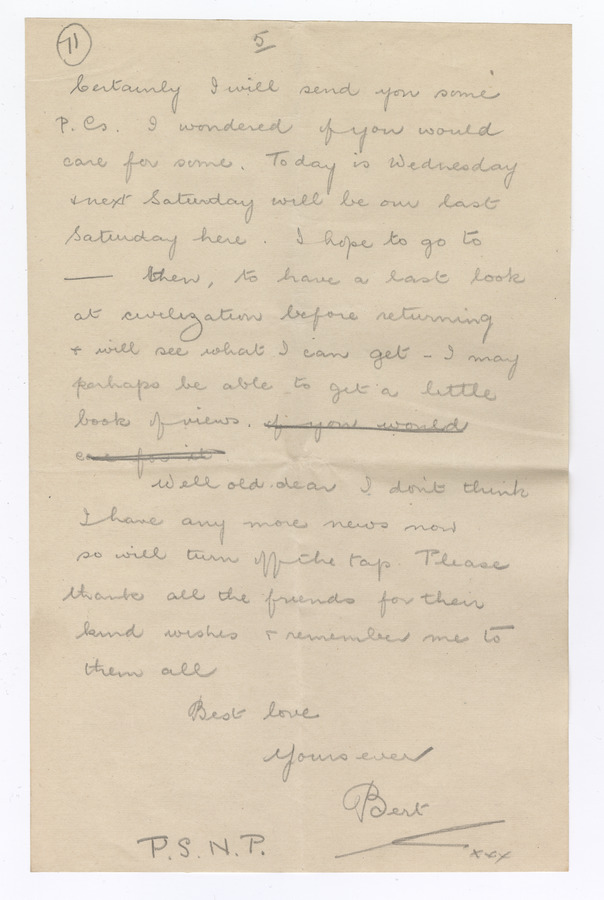 11
5
Certainly I will send you some
P. Cs. I wondered if you would
care for some. Today is Wednesday
& next Saturday will be our last
Saturday here. I hope to go to
— then, to have a last look
at civilization before returning
& will see what I can get – I may
perhaps be able to get a little
book of views. if you would
care for it
Well old dear I don't think
I have any more news now
so will turn off the tap. Please
thank all the friends for their
kind wishes & remember me to
them all
Best love
Yours ever
Bert
P.S.N.P.
xxx